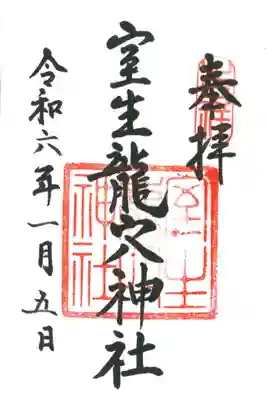 奉拝
室生龍穴神社
令和六年一月五日